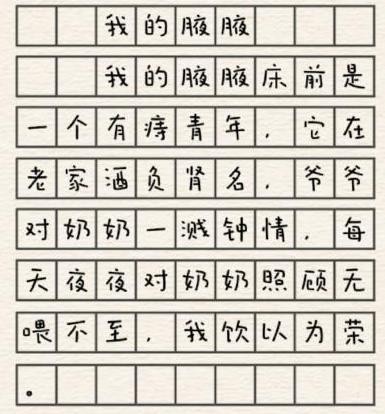 我的腋腋
我的腋腋床前是
一个有痔青年，它在
老家酒负肾名，爷爷
对奶奶一溅钟情，每
天夜夜对奶奶照顾无
喂不至，我饮以为荣
。